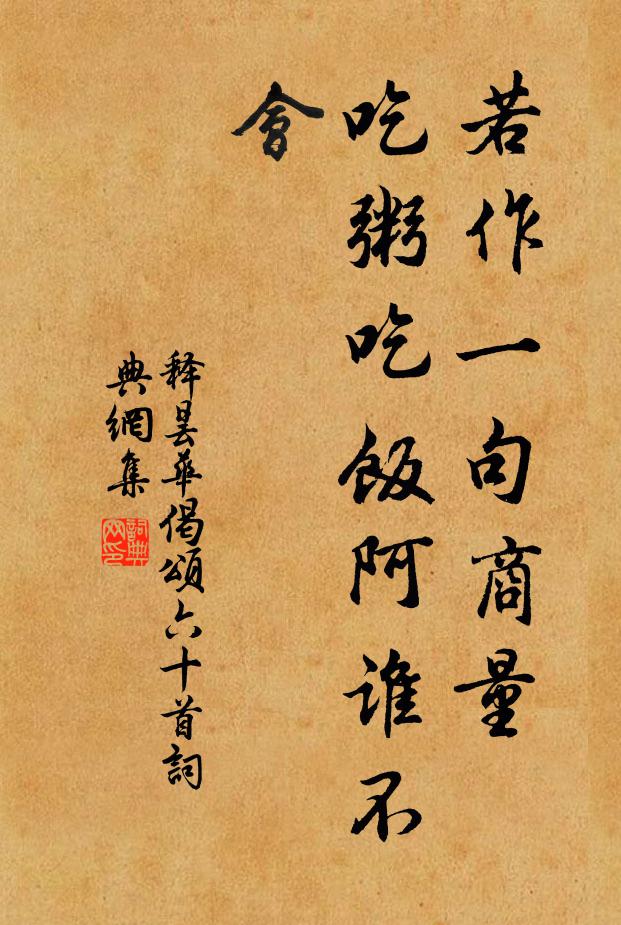 若作一句商量
吃粥吃飯阿誰不
會
释曇華偈頌六十首詞
典網集
詞典
网印